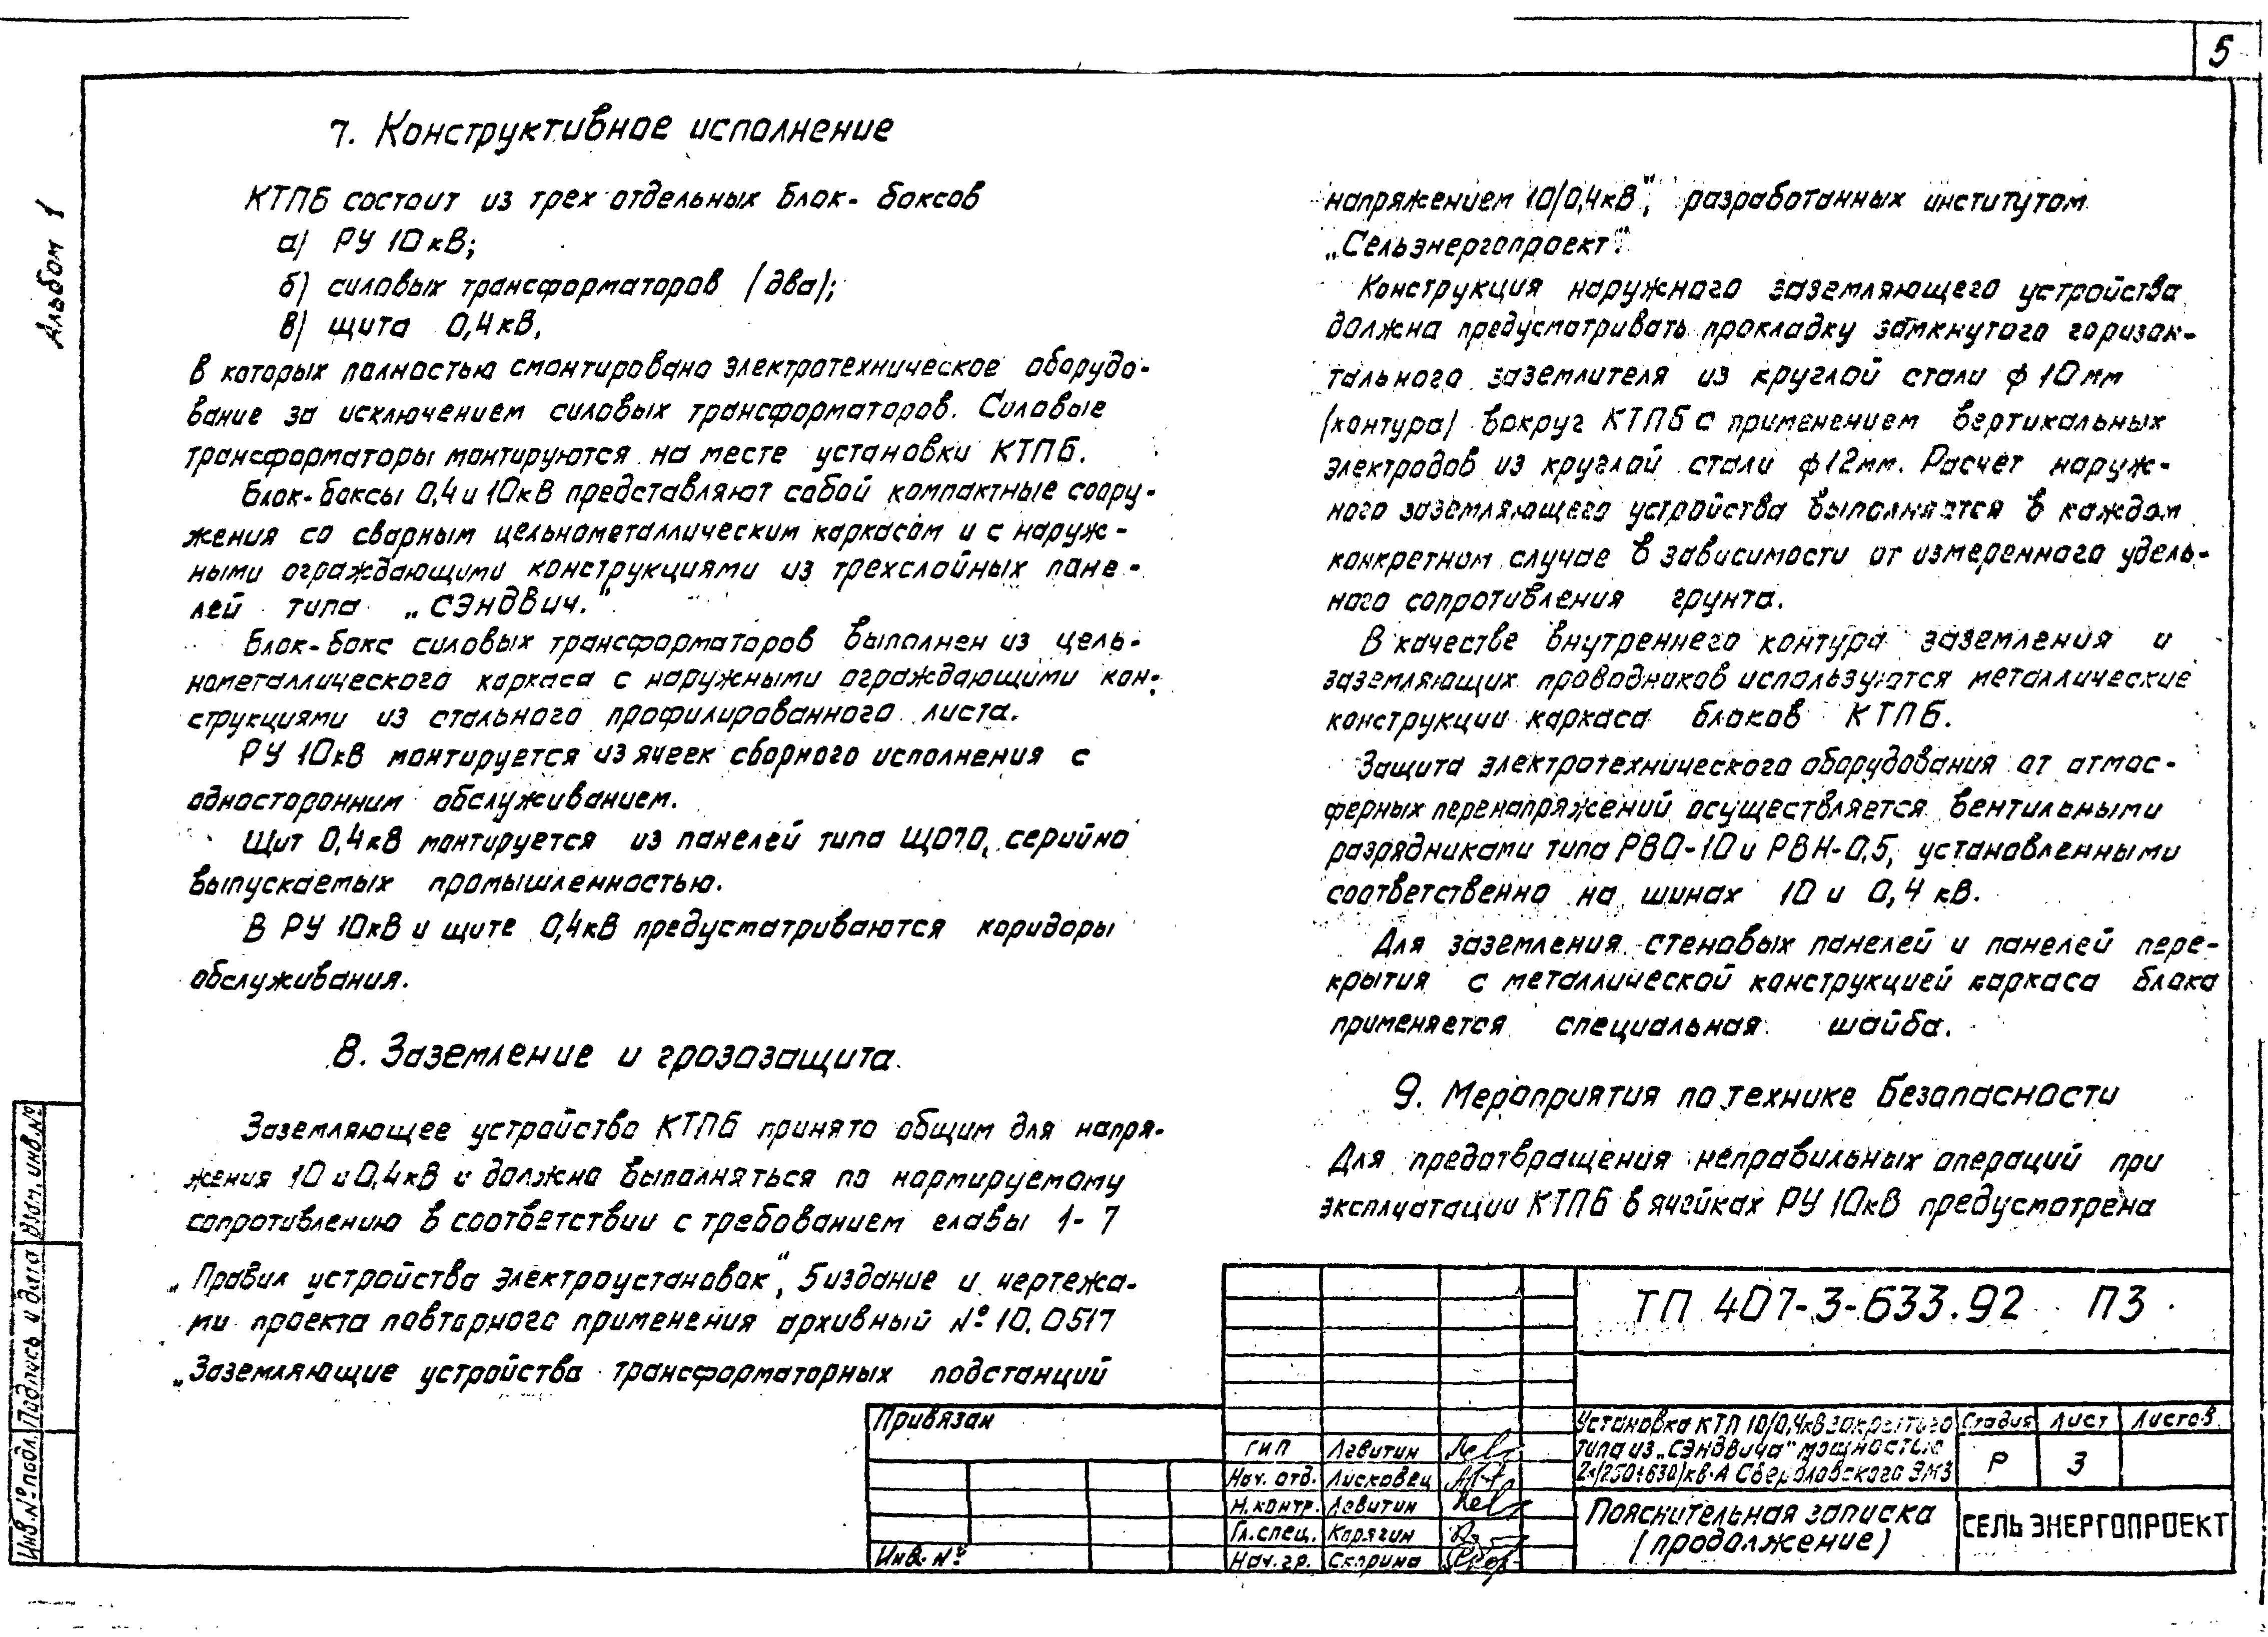 5
Альбом 1
7. Конструктивное исполнение
КТПБ состоит из трех отдельных блок- боксов
а) РУ 10кВ;
б) силовых трансформаторов (два);
в) щита 0,4кВ,
в которых полностью смонтировано электротехническое оборудо-
вание за исключением силовых трансформаторов. Силовые
трансформаторы монтируются на месте установки КТПБ.
Блок-боксы 0,4 и 10кВ представляют собой компактные соору-
жения со сварным цельнометаллическим каркасом и с наруж-
ными ограждающими конструкциями из трехслойных пане-
лей типа „Сэндвич."
Блок-бокс силовых трансформаторов выполнен из цель-
нометаллического каркаса с наружными ограждающими кон-
струкциями из стального профилированного листа.
РУ 10кВ монтируется из ячеек сборного исполнения с
односторонним обслуживанием.
Щит 0,4кВ монтируется из панелей типа ЩО70, серийно
выпускаемых промышленностью.
В РУ 10кВ и щите 0,4кВ предусматриваются коридоры
обслуживания.
8. Заземление и грозозащита.
Заземляющее устройство КТПБ принято общим для напря-
жения 10 и 0,4кВ и должно выполняться по нормируемому
сопротивлению в соответствии с требованием главы 1-7
„Правил устройства электроустановок", 5 издание и чертежа-
ми проекта повторного применения архивный № 10.0517
„Заземляющие устройства трансформаторных подстанций
напряжением 10/0,4кВ", разработанных институтом
„Сельэнергопроект".
Конструкция наружного заземляющего устройства
должна предусматривать прокладку замкнутого горизон-
тального заземлителя из круглой стали ф 10мм
(контура) вокруг КТПБ с применением вертикальных
электродов из круглой стали ф12мм. Расчет наруж-
ного заземляющего устройства выполняется в каждом
конкретном случае в зависимости от измеренного удель-
ного сопротивления грунта.
В качестве внутреннего контура заземления и
заземляющих проводников используются металлические
конструкции каркаса блоков КТПБ.
Защита электротехнического оборудования от атмос-
ферных перенапряжений осуществляется вентильными
разрядниками типа РВО-10 и РВН-0,5, установленными
соответственно на шинах 10 и 0,4 кВ.
Для заземления стеновых панелей и панелей пере-
крытия с металлической конструкцией каркаса блока
применяется специальная шайба.
9. Мероприятия по технике безопасности
Для предотвращения неправильных операций при
эксплуатации КТПБ в ячейках РУ 10кВ предусмотрена
ТП 407-3-633.92 ПЗ
Установка КТП 10/0,4кВ закрытого
типа из „Сэндвича" мощностью
2х(250÷630)кВ·А Свердловского ЭМЗ
Стадия Лист Листов
Р 3
Пояснительная записка
(продолжение)
СЕЛЬЭНЕРГОПРОЕКТ
Привязан
Инв. №
ГИП Левитин
Нач. отд. Лисковец
Н.контр. Левитин
Гл.спец. Карягин
Нач.гр. Скорина
Инв.№ подл. Подпись и дата Взам. инв.№